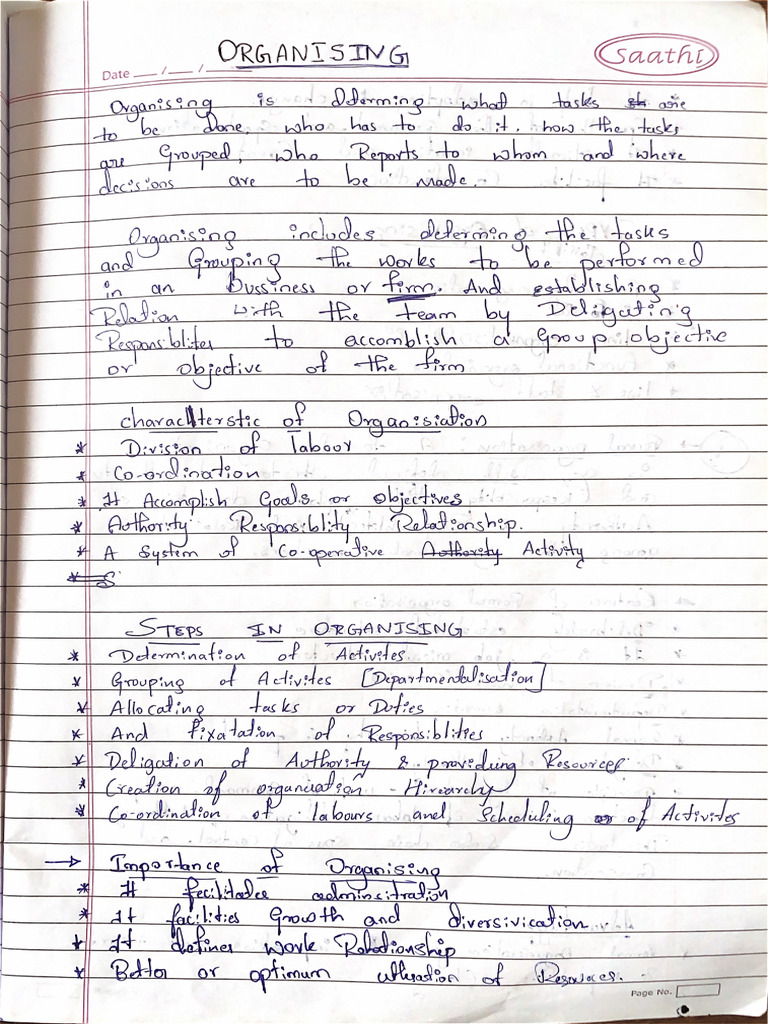 ORGANISING
Saathi
Date __/__/____
Organising is determing what tasks are
to be done, who has to do it, how the tasks
are Grouped, who Reports to whom and where
decisions are to be made.
Organising includes determing the tasks
and Grouping the works to be performed
in an bussiness or firm. And establishing
Relation with the team by Deligating
Responsiblites to accomplish a Group objective
or objective of the firm
characterstic of Organisiation
* Division of labour
* Co-ordination
* It Accomplish Goals or objectives
* Authority Responsiblity Relationship.
* A System of Co-operative Authority Activity
* S
STEPS IN ORGANISING
* Determination of Activites
* Grouping of Activites [Departmentalisation]
* Allocating tasks or Duties
* And fixatation of Responsiblities
* Deligation of Authority & providing Resources.
* Creation of organisation Hirearchy
* Co-ordination of labours and Scheduling or of Activites
→ Importance of Organising
* It fecilitates adminsitration
* It facilities Growth and diversivication
* It defines work Relationship
* Better or optimum of Resources.
Page No.